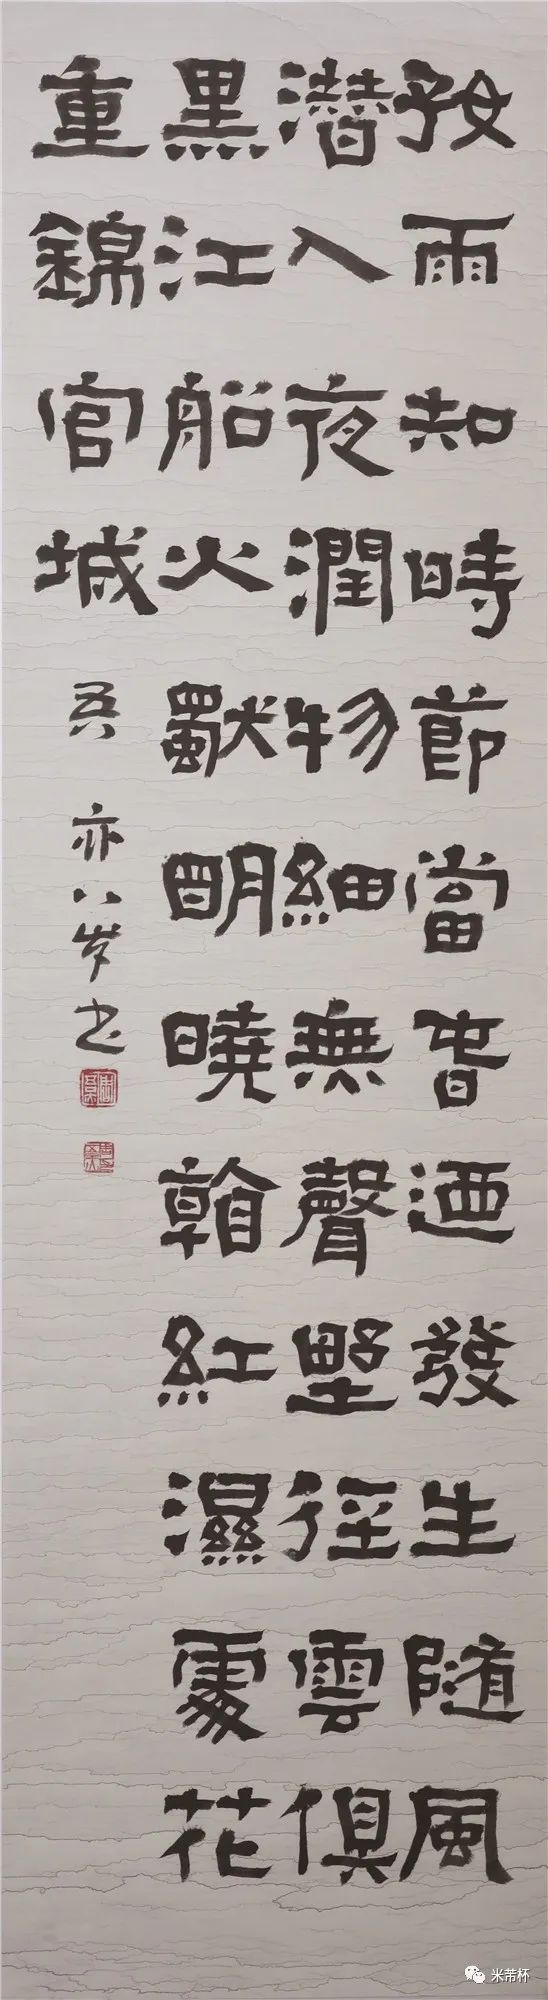 好雨知時節當旾迺發生随風
潜入夜潤物細無聲野徑雲俱
黑江船火獨眀曉看紅濕處花
重錦官城
亦八岁书
米芾杯